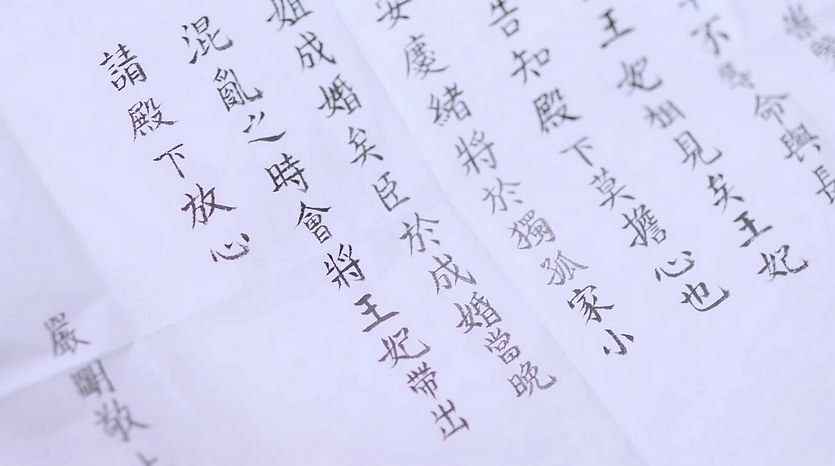 不命與長
王妃相見矣王妃
告知殿下莫擔心也
安慶緒將於獨孤家小
姐成婚矣臣於成婚當晚
混亂之時會將王妃帶出
請殿下放心
嚴明敬